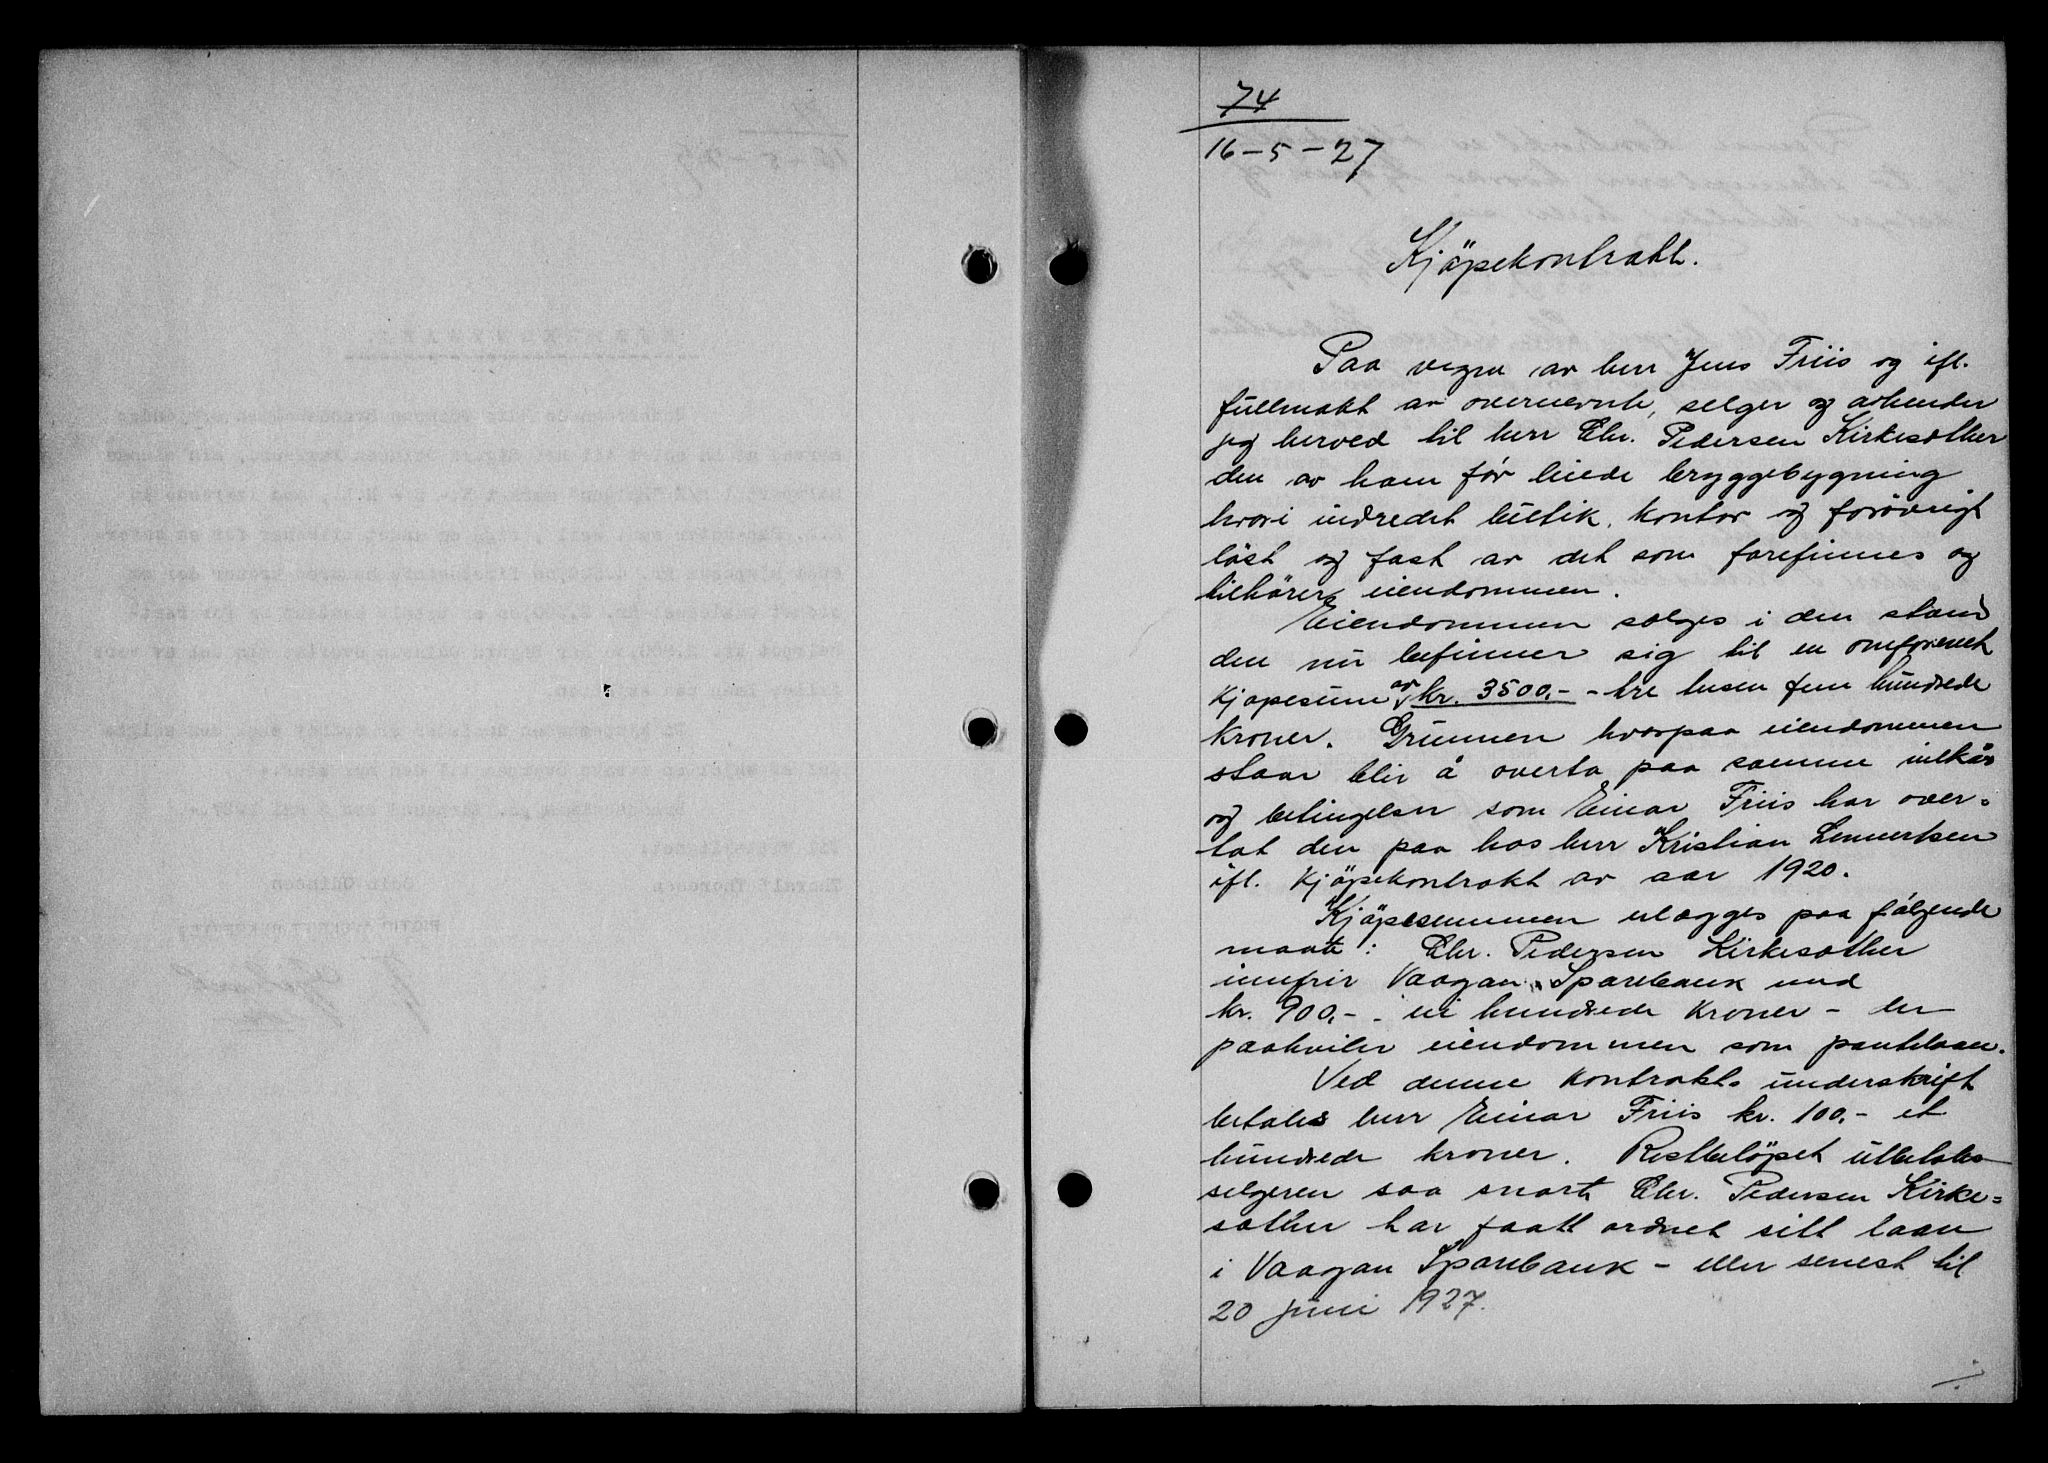 74
16-5-27
Kjöpekontrakt.
Paa vegne av herr Jens Friis og ifl.
fullmakt av overnevnte, selger og avhender
jeg herved til herr Chr. Pedersen Kirkesæther
den av ham før leiede bryggebygning
hvori indredet butik, kontor og forövrigt
löst og fast av det som forefinnes og
tilhörer eiendommen.
Eiendommen sælges i den stand
den nu befinner sig til en omforenet
kjøpesum av kr. 3500,- - tre tusen fem hundrede
kroner. Grunnen hvorpaa eiendommen
staar blir å overta paa samme vilkår
og betingelser som Einar Friis har over-
tat den paa hos herr Kristian Lennertsen
ifl. kjöpekontrakt av aar 1920.
Kjöpesummen erlægges paa fölgende
maate: Chr. Pedersen Kirkesæther
innfrir Vaagan Sparebank med
kr. 900,- - ni hundrede kroner - der
paahviler eiendommen som pantelaan.
Ved denne kontrakts underskrift
betales herr Einar Friis kr. 100,- et
hundrede kroner. Restbelöpet utbetales
selgeren saa snart Chr. Pedersen Kirke-
sæther har faatt ordnet sitt laan
i Vaagan Sparebank - eller senest til
20 juni 1927.